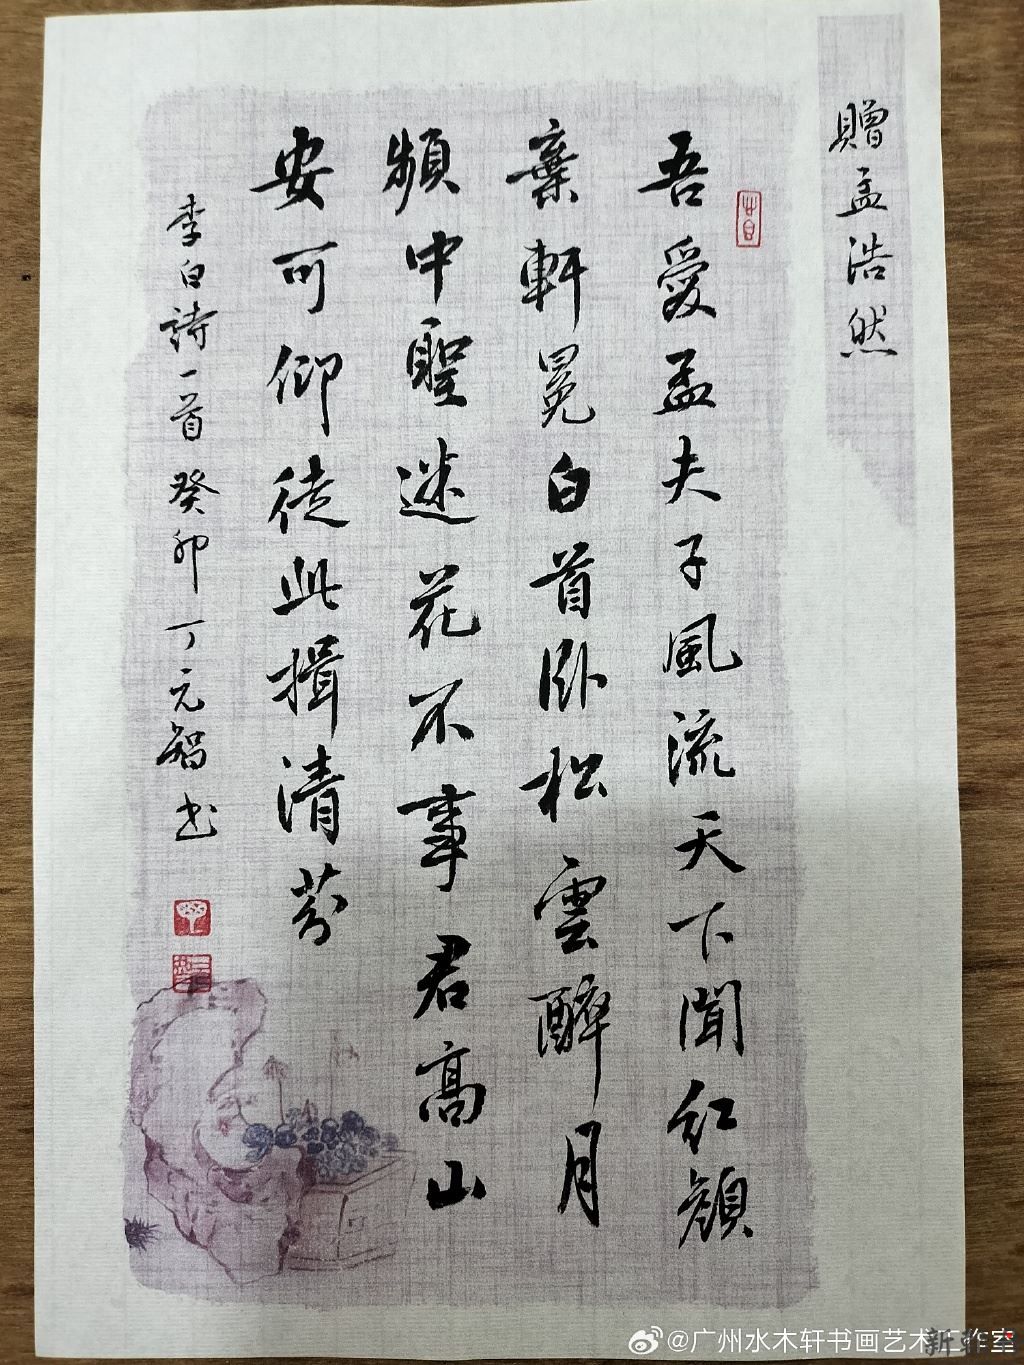 贈孟浩然
吾愛孟夫子風流天下聞紅顏
棄軒冕白首臥松雲醉月
頻中聖迷花不事君高山
安可仰徒此揖清芬
李白詩一首 癸卯 丁元智书
@广州水木轩书画艺术工作室